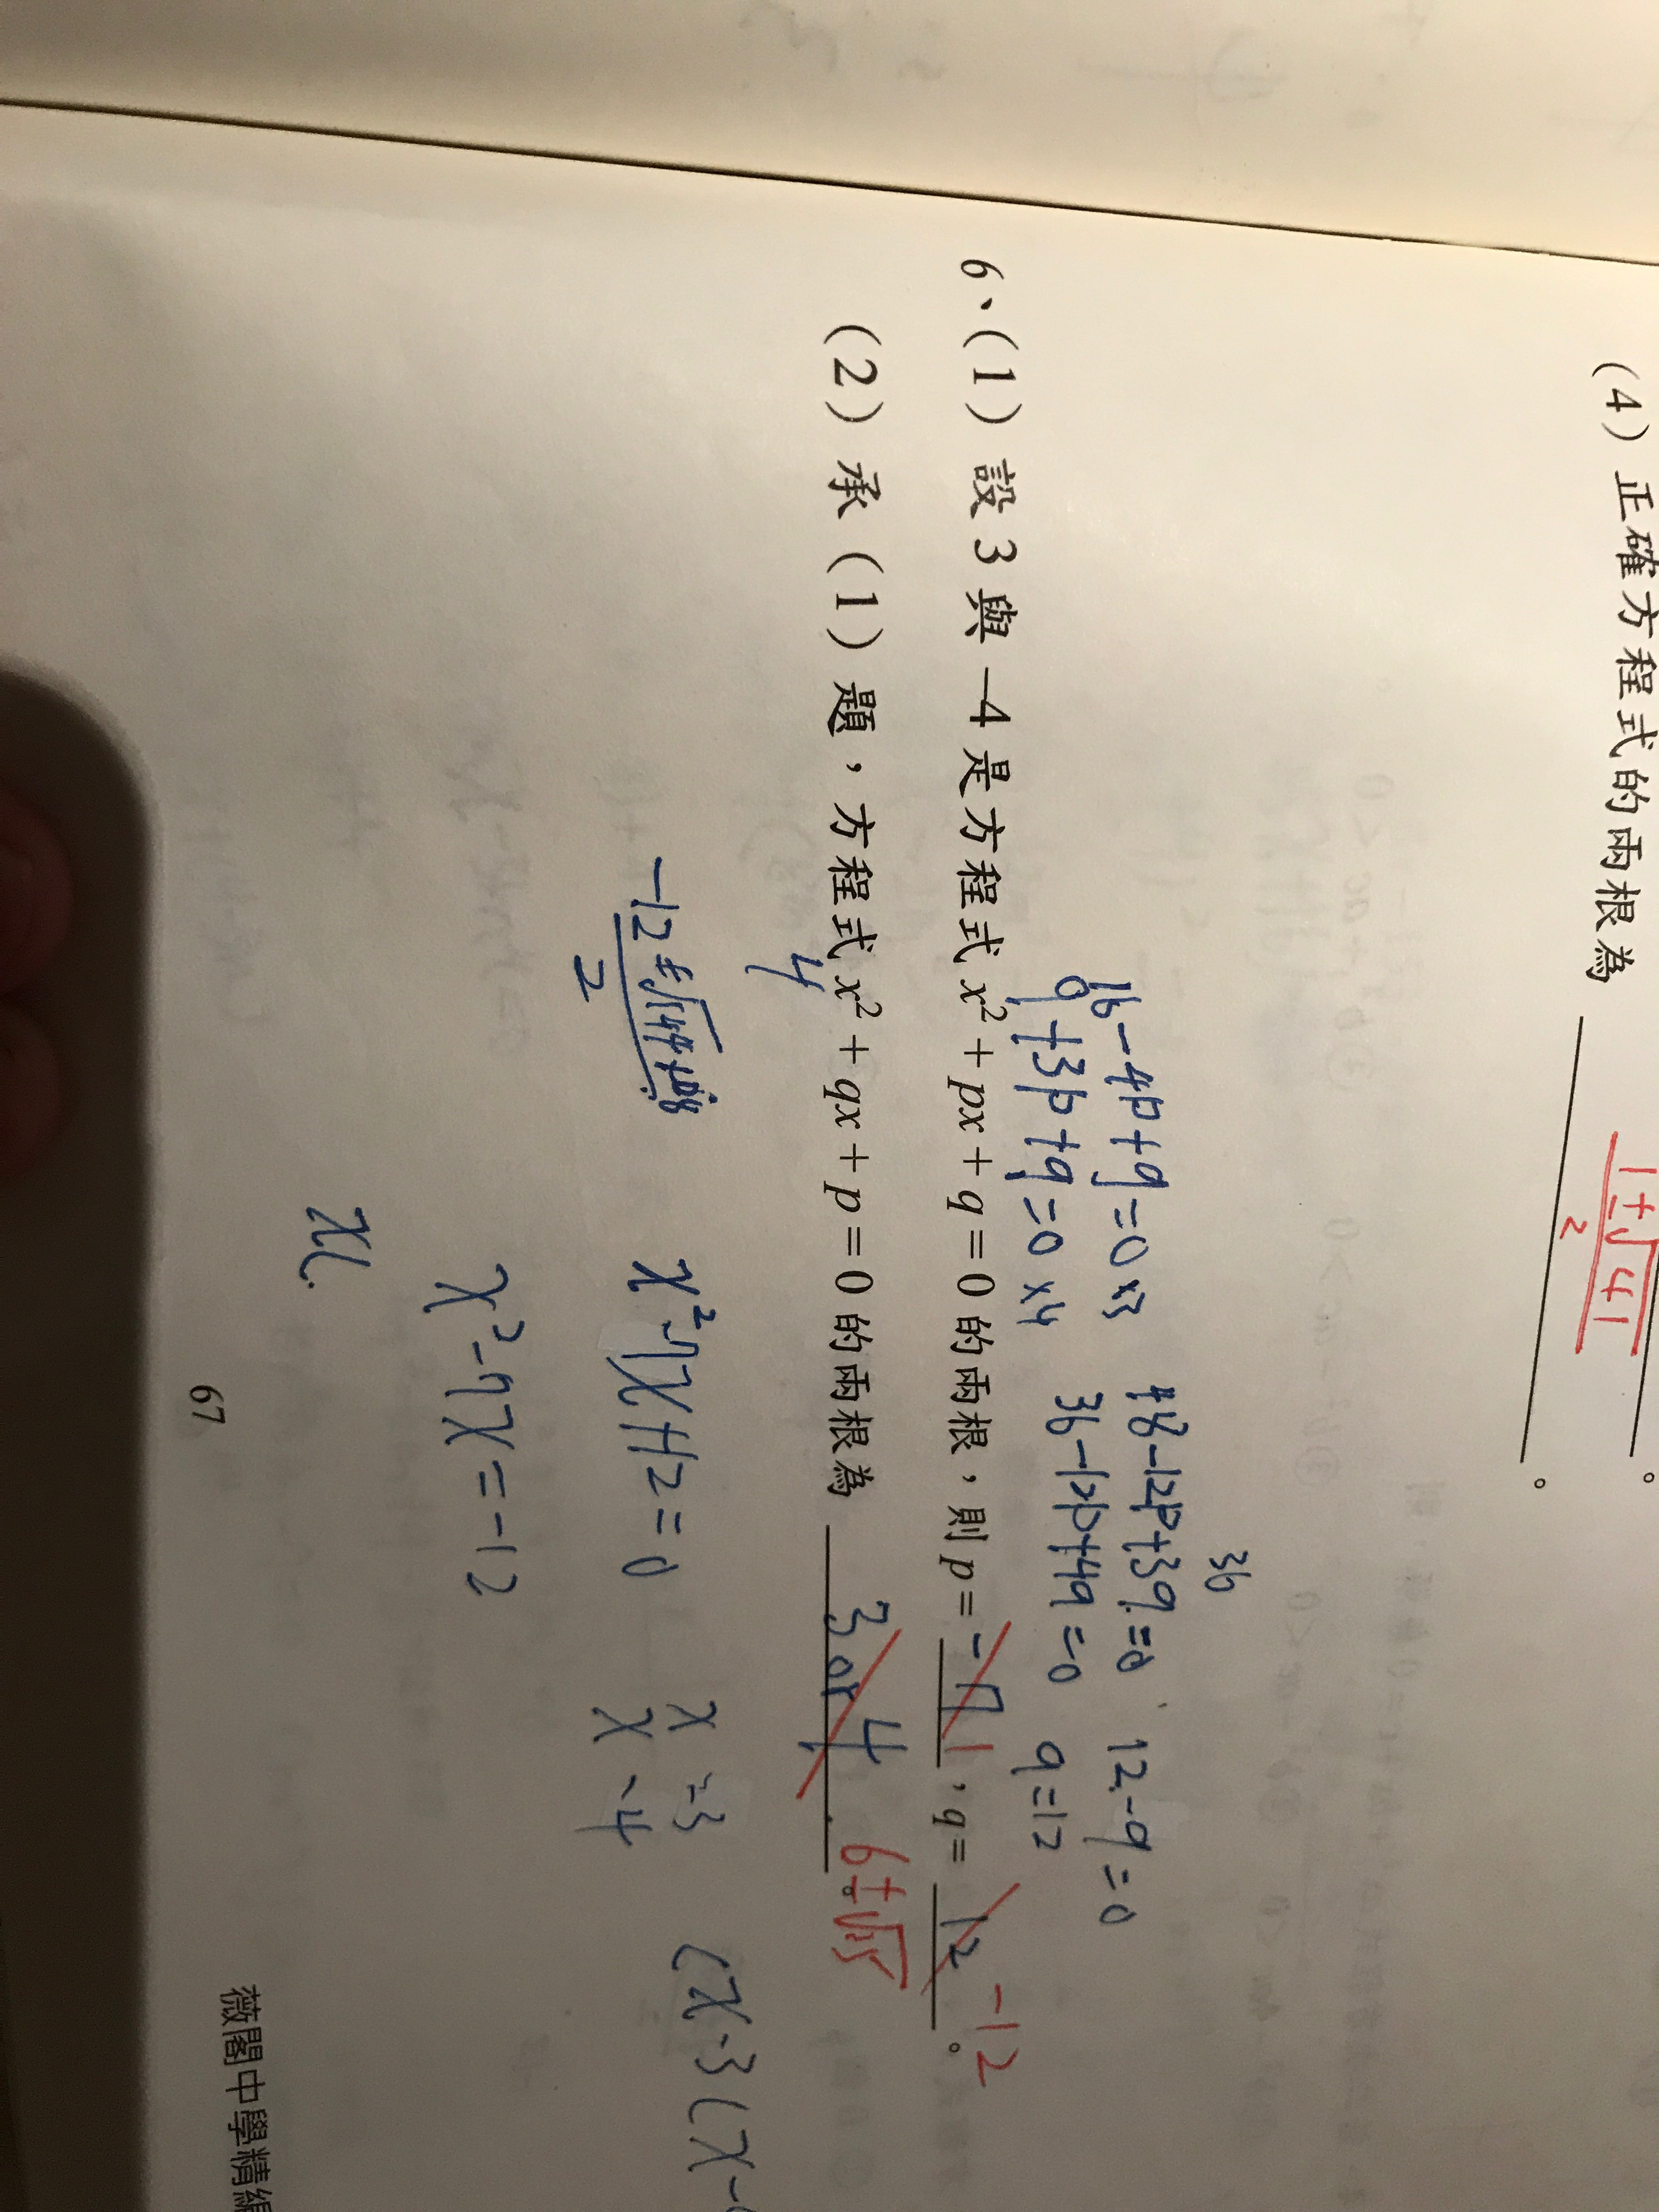 (4) 正確方程式的兩根為
1±√41
2
。
。
36
16-4p+q=0 ×3 48-12p+3q=0 12-q=0
9+3p+q=0 ×4 36-12p+4q=0 q=12
6、(1) 設 3 與 -4 是方程式 x²+px+q=0 的兩根，則 p= -7 1 ，q= 12 -12 。
(2) 承 (1) 題，方程式 x²+qx+p=0 的兩根為 3 or 4 。 6±√35
4
x²-7x+12=0 x -3 (x-3(x-
2 x -4
x²-7x=-12
x
67
薇閣中學精編